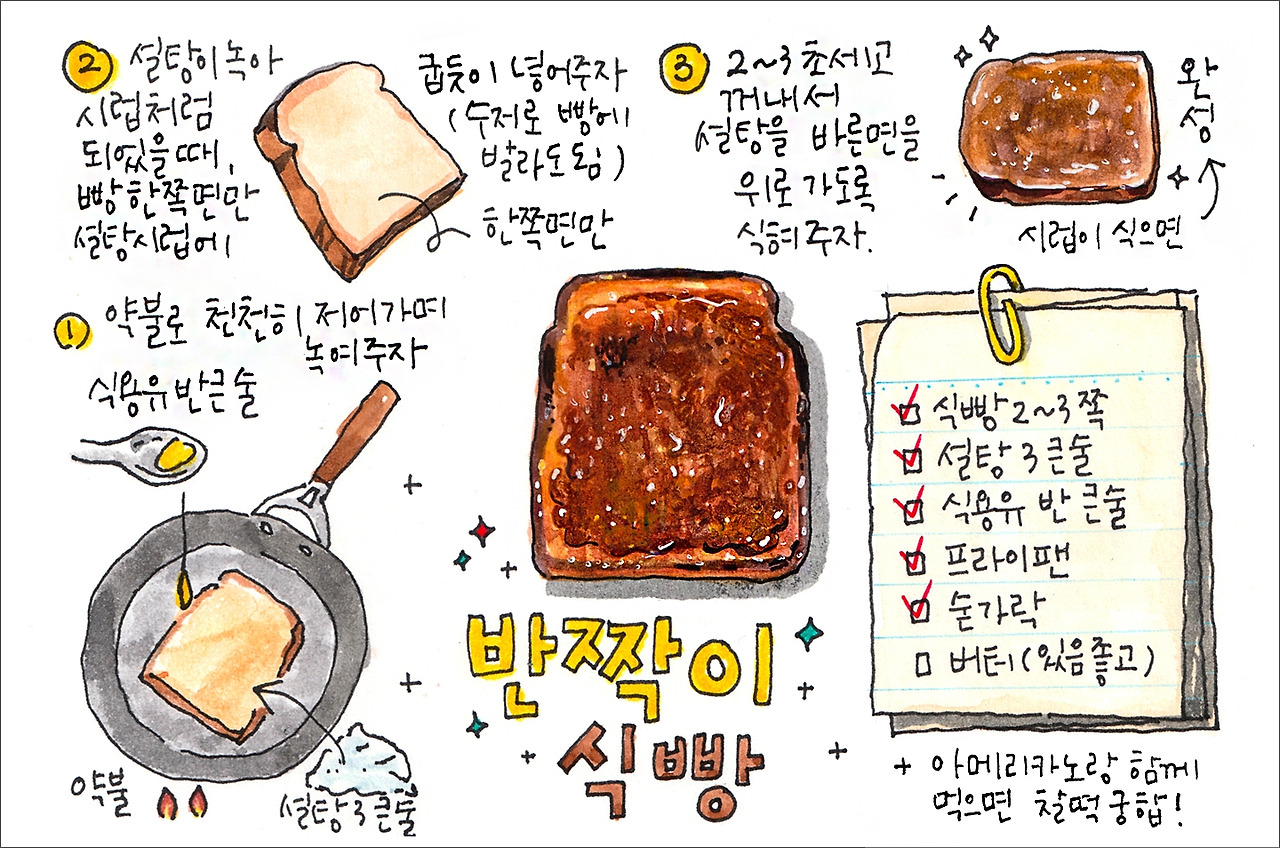 반짝이
식빵
① 약불로 천천히 저어가며
녹여주자
식용유 반큰술
약불
설탕 3큰술
② 설탕이 녹아
시럽처럼
되었을 때,
빵 한쪽면만
설탕시럽에
굽듯이 넣어주자
(수저로 빵에
발라도 됨)
한쪽면만
③ 2~3초 세고
꺼내서
설탕을 바른면을
위로 가도록
식혀주자.
시럽이 식으면
완성
식빵 2~3쪽
설탕 3큰술
식용유 반 큰술
프라이팬
숟가락
버터(있음좋고)
+ 아메리카노랑 함께
먹으면 찰떡궁합!